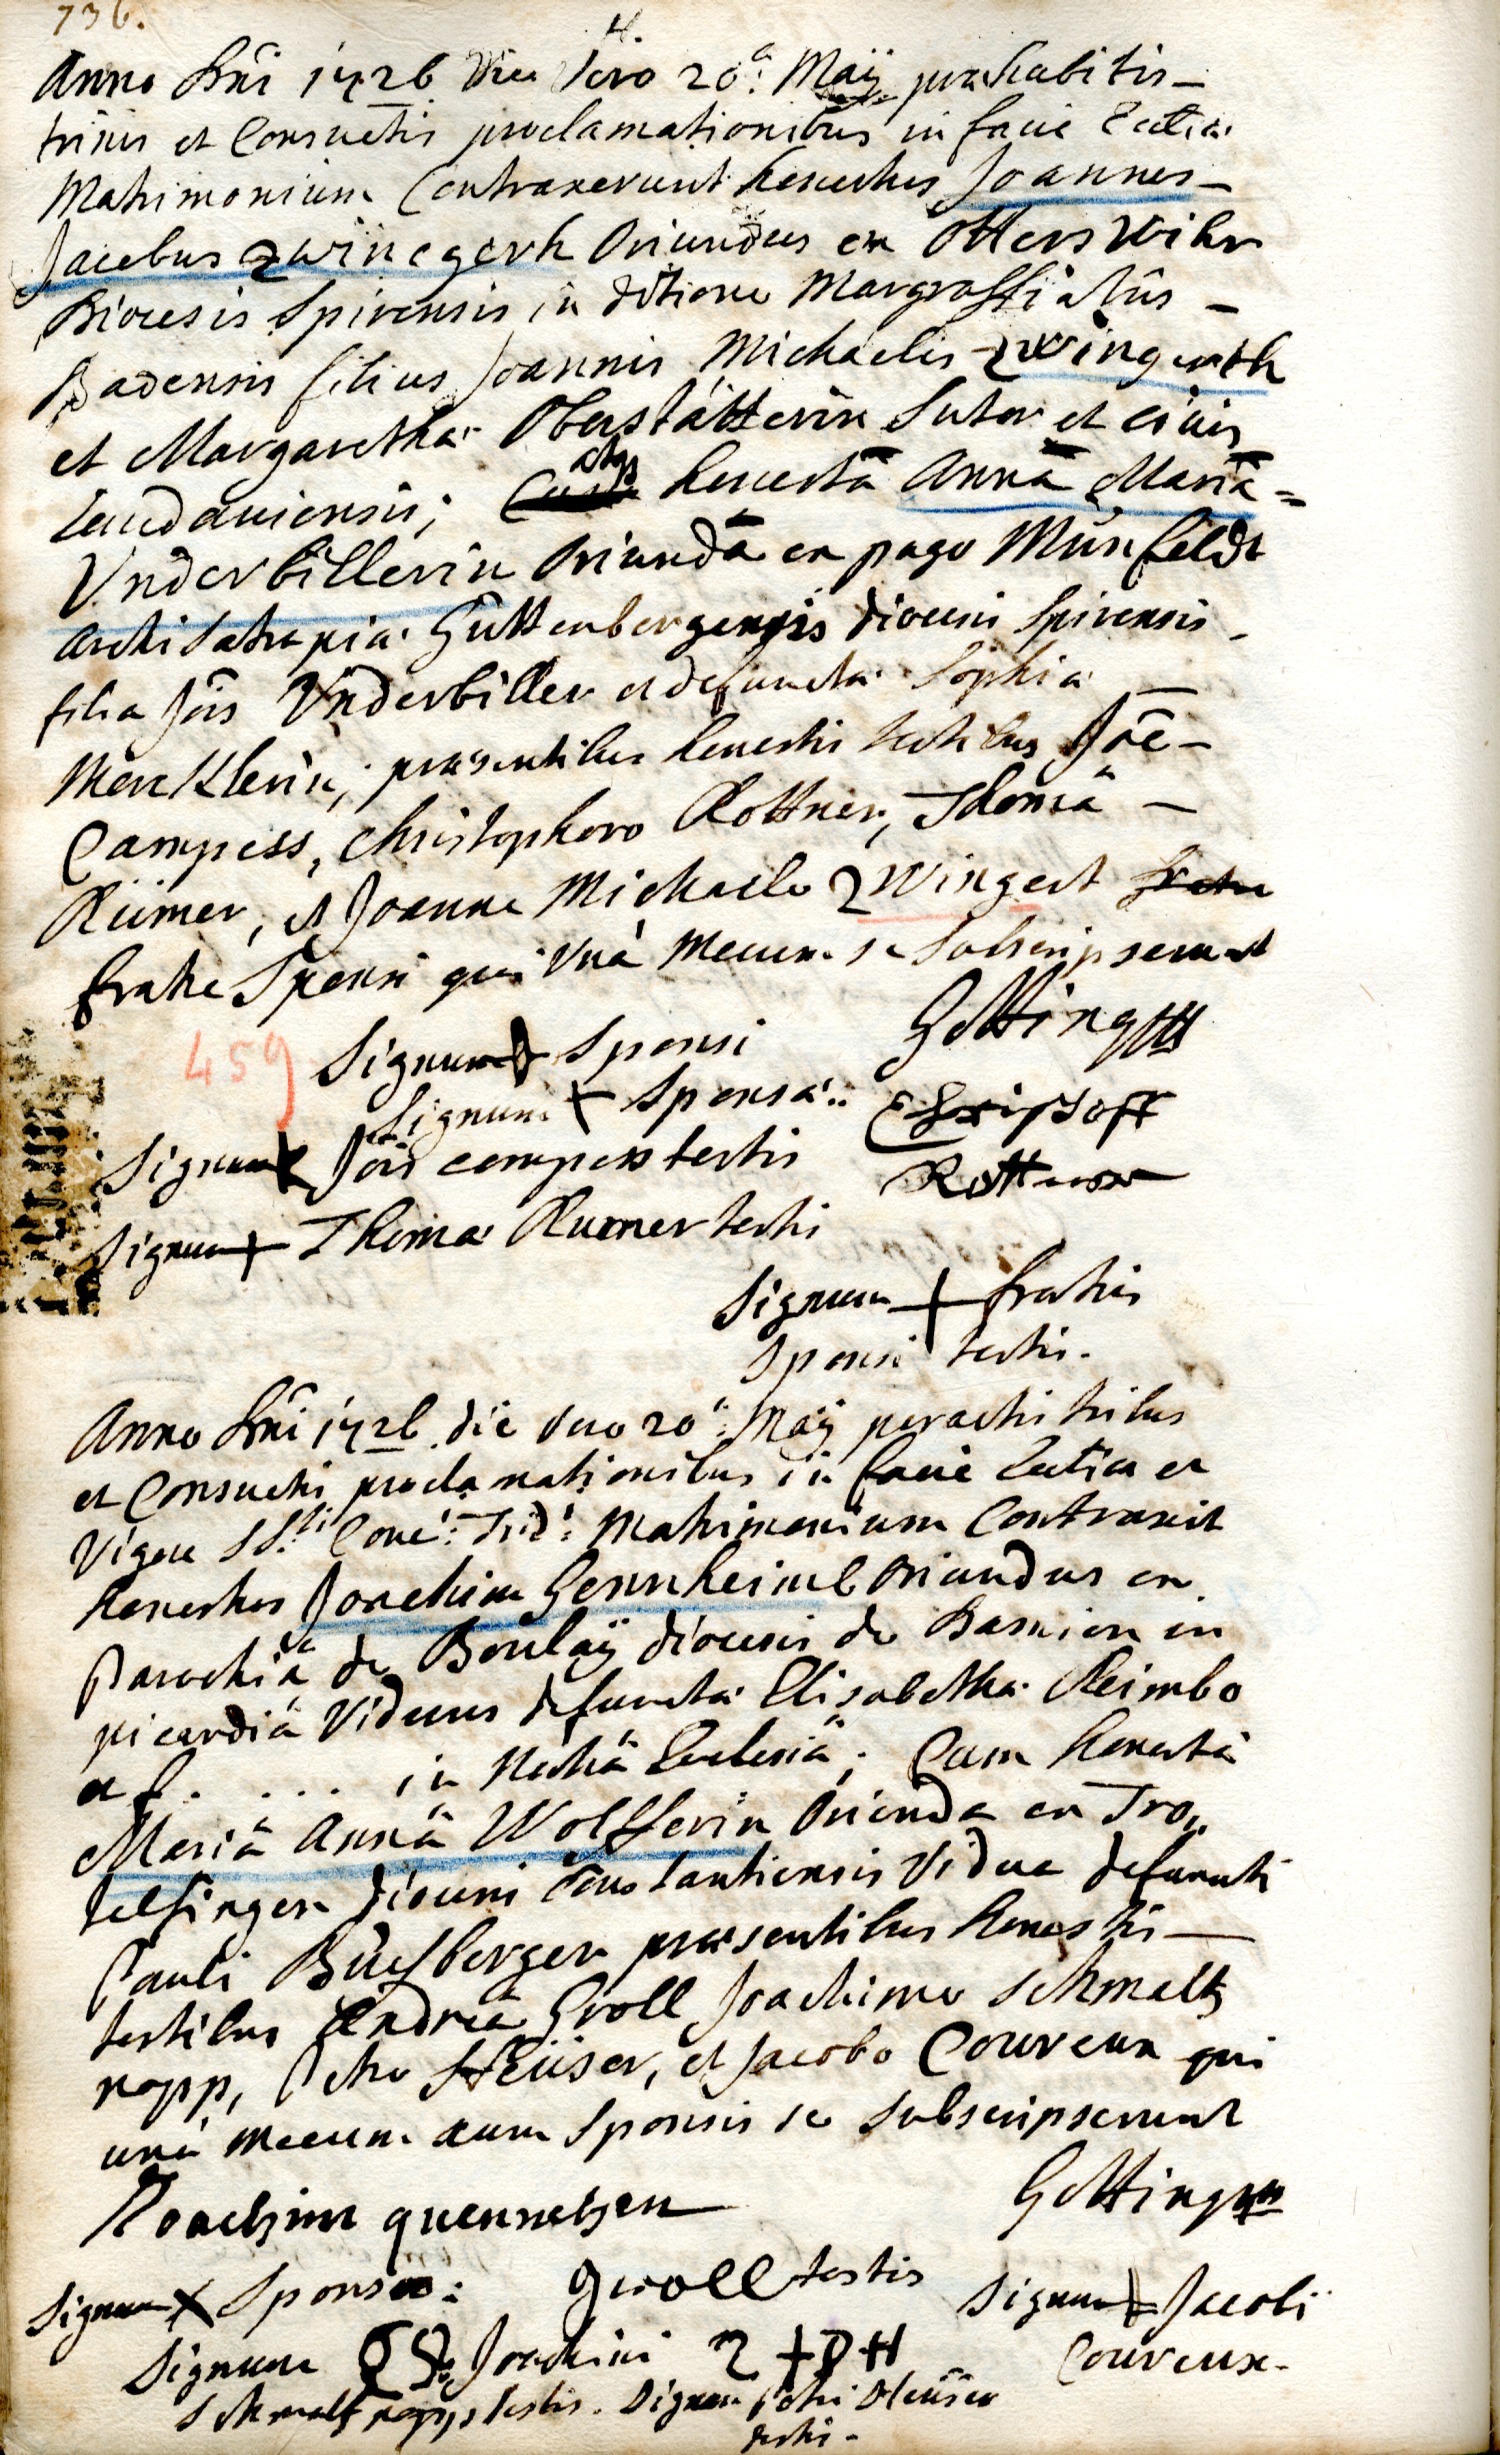 736.
H.
Anno Dni 1726 die Vero 20a: Maÿ praehabitis
trinis et Consuetis proclamationibus in facie Eccliae
Matrimonium Contraxerunt honestus Joannes
Jacobus Zwinegerh Oriundus ex Otterswihr
Dioecesis Spirensis in ditione Margraffiatûs
Badensis filius Joannis Michaelis Zwingerth
et Margaretha Oberstätterin Sutor et civis
Landaviensis; atq honestâ Annâ Mariâ
Vnderbillerin Oriundâ ex pago Münfeldt
archisatrapiae Guttenbergensis dioecesis Spirensis
filia Jôis Vnderbiller et defunctae Sophiae
Mercklerin, praesentibus honestis testibus Joê
Campess, Christophoro Rottner, Thomâ
Rümer, et Joanne Michaele Zwingert
fratre Sponsi qui Vnà Mecum se Subscripserunt
Gotting
459 Signum + Sponsi
Signum + Sponsae Christoff
Signum + Jôis campess testis Rottner
Signum + Thomae Rumer testis
Signum + fratris
Sponsi testis.
Anno Dni 1726 die Vero 20a: Maÿ peractis tribus
et Consuetis proclamationibus in facie Eccliae ex
Vigore SSti Conc: Trid: Matrimonium Contraxit
honestus Joachim Gennheiml Oriundus ex
Parochiâ de Boulaÿ dioecesis de in
picardiâ Viduus defunctae Elisabethae Reimbo
. . . . in Ecclesiâ; Cum honestâ
Mariâ Annâ Wolfferin Oriunda ex Tro,,
telfingen dioecesis Constantiensis Vidua defuncti
Pauli Buchberger praesentibus honestis
testibus Andrea Groll Joachimo Schmaltz
napp, Petro Heüser, et Jacobo Couveux qui
unà mecum cum Sponsis se Subscripserunt
Gotting
Joachim quennehen
Signum + Sponsae: groll testis Signum + Jacobi
Signum Joachimi Couveux.
Schmaltznapp testis. Signum petri Heüser
testis.